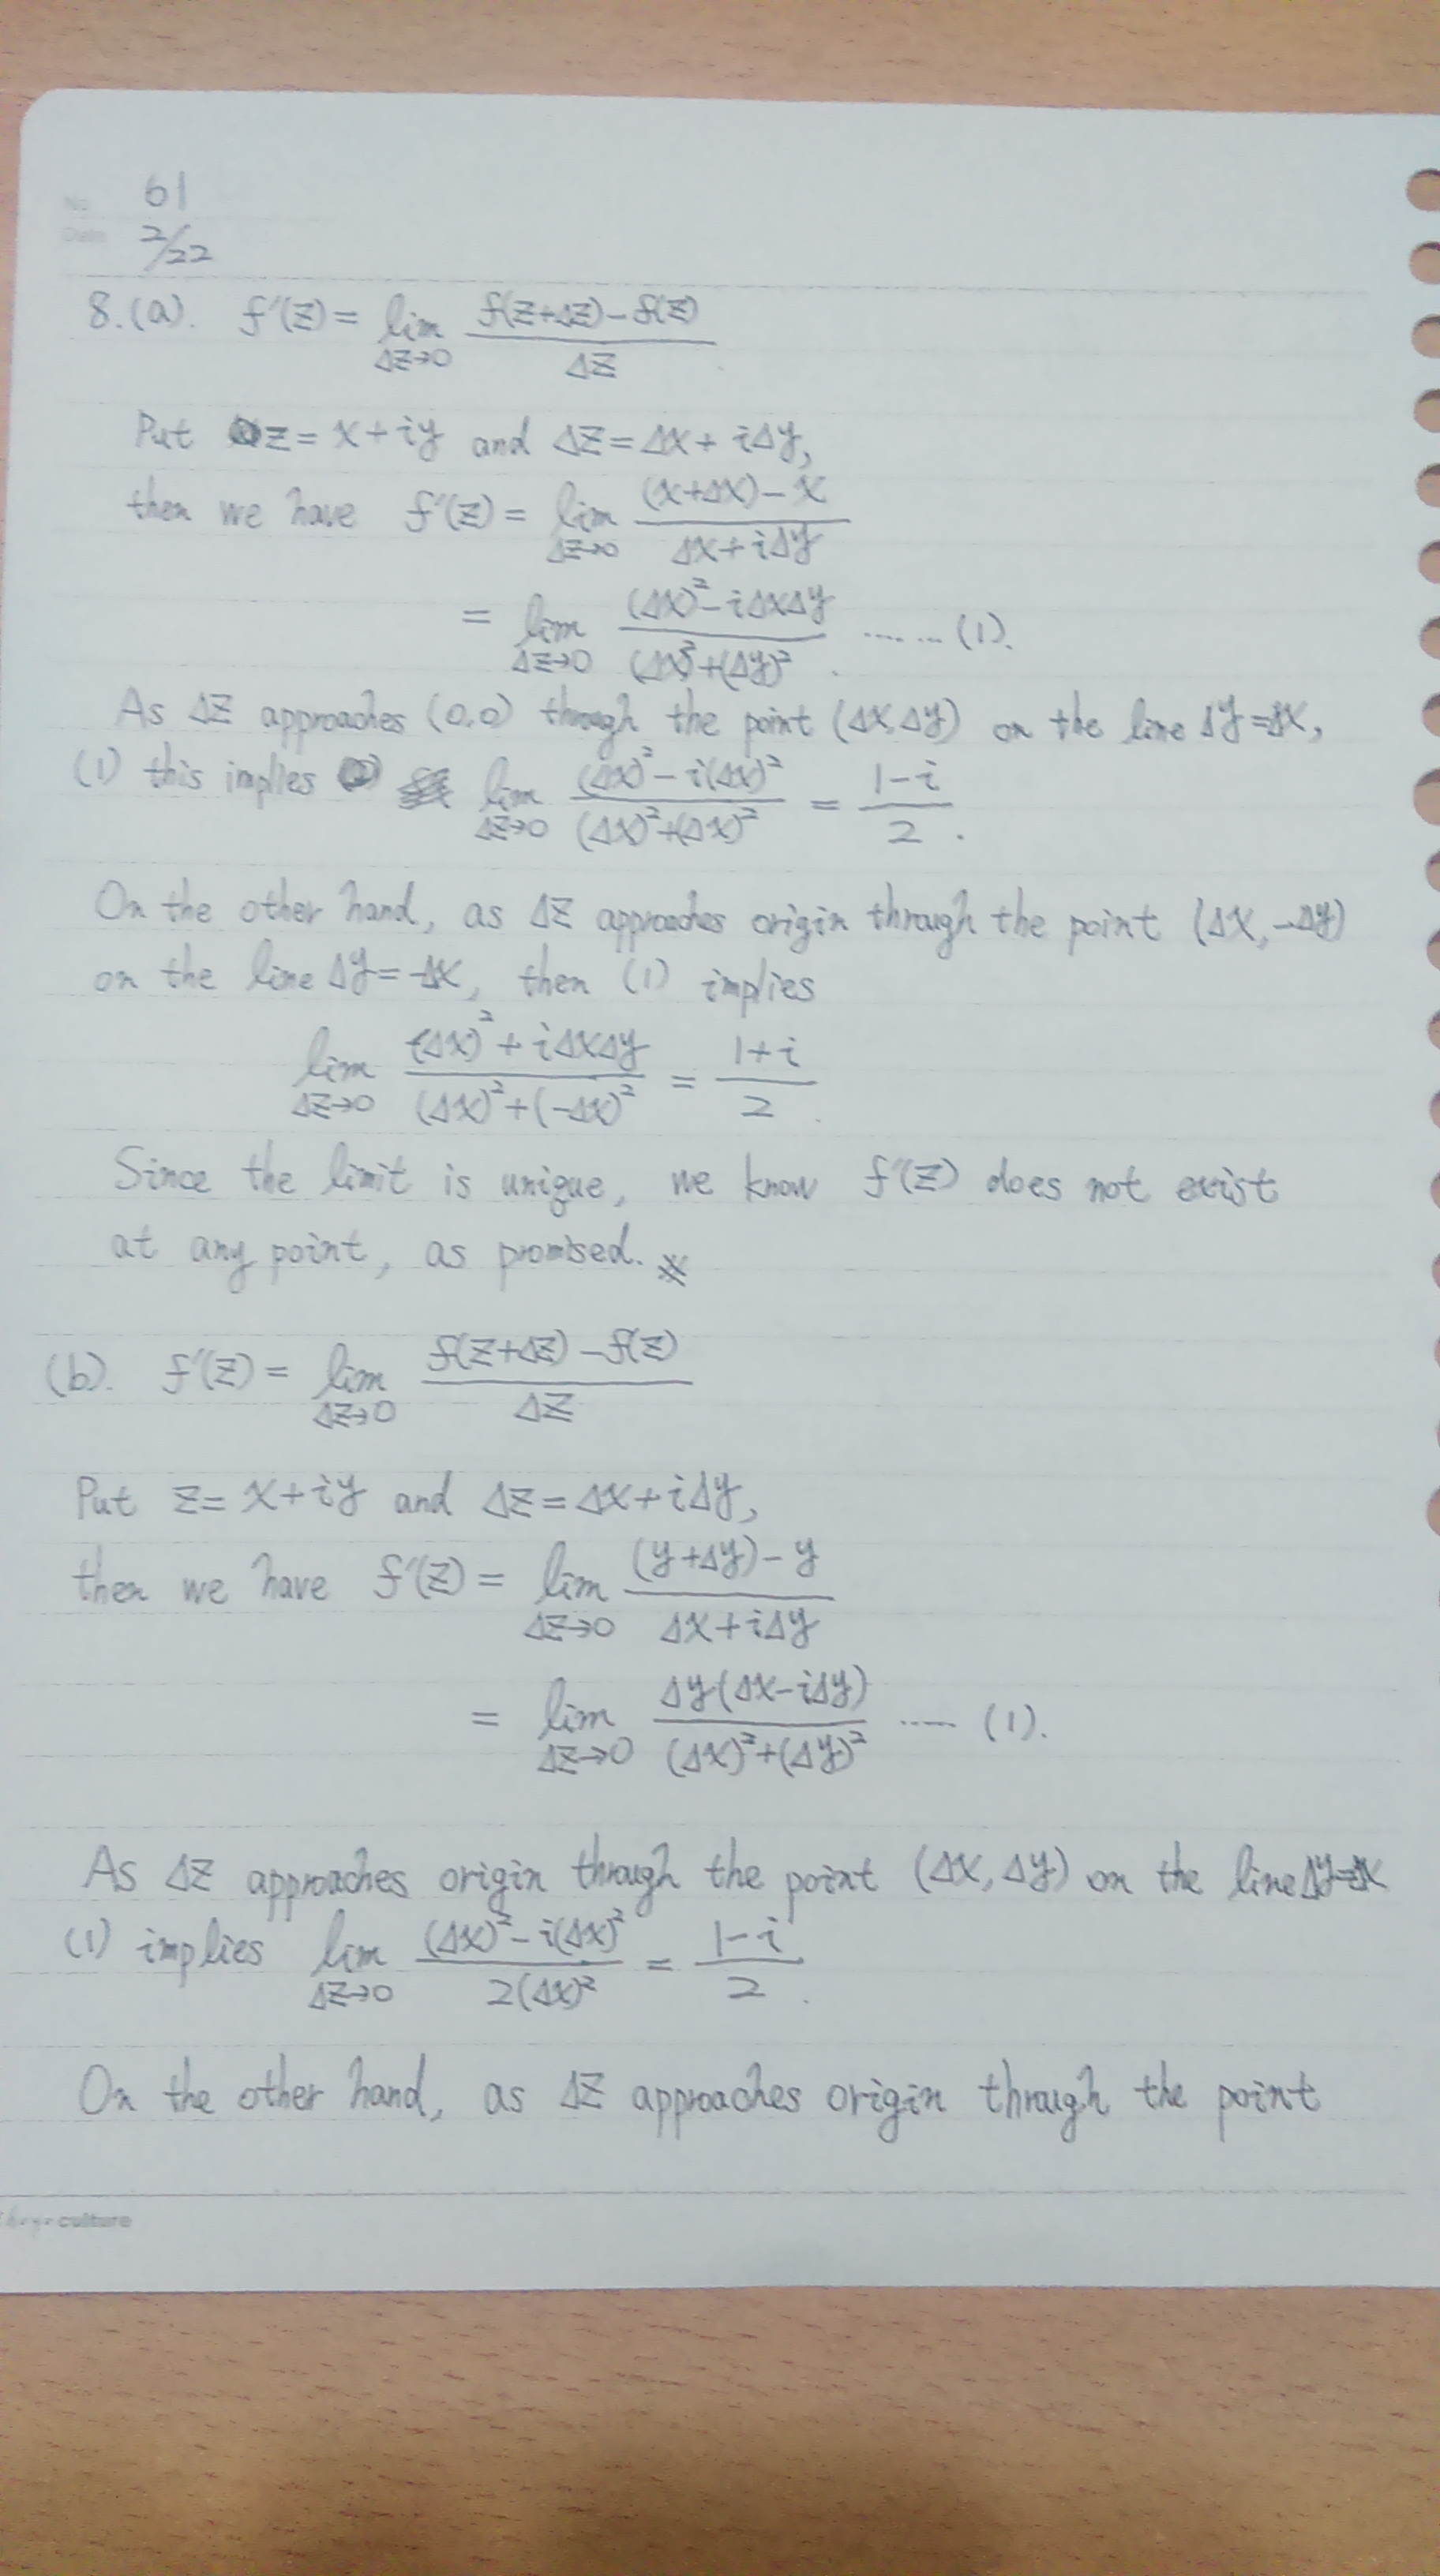 No. 61
Date 2/22
8.(a). f'(z) = lim_{Δz→0} (f(z+Δz)-f(z))/Δz.
Put z = x+iy and Δz = Δx + iΔy,
then we have f'(z) = lim_{Δz→0} ((x+Δx)-x)/(Δx+iΔy)
= lim_{Δz→0} ((Δx)²-iΔxΔy)/((Δx)²+(Δy)²). ...... (1).
As Δz approaches (0,0) through the point (Δx,Δy) on the line Δy=Δx,
(1) this implies lim_{Δz→0} ((Δx)²-i(Δx)²)/((Δx)²+(Δx)²) = (1-i)/2.
On the other hand, as Δz approaches origin through the point (Δx,-Δy)
on the line Δy=-Δx, then (1) implies
lim_{Δz→0} ((Δx)²+iΔxΔy)/((Δx)²+(-Δx)²) = (1+i)/2.
Since the limit is unique, we know f'(z) does not exist
at any point, as promised. ※
(b). f'(z) = lim_{Δz→0} (f(z+Δz)-f(z))/Δz
Put z = x+iy and Δz = Δx+iΔy,
then we have f'(z) = lim_{Δz→0} ((y+Δy)-y)/(Δx+iΔy)
= lim_{Δz→0} (Δy(Δx-iΔy))/((Δx)²+(Δy)²) ..... (1).
As Δz approaches origin through the point (Δx,Δy) on the line Δy=Δx
(1) implies lim_{Δz→0} ((Δx)²-i(Δx)²)/(2(Δx)²) = (1-i)/2.
On the other hand, as Δz approaches origin through the point
culture